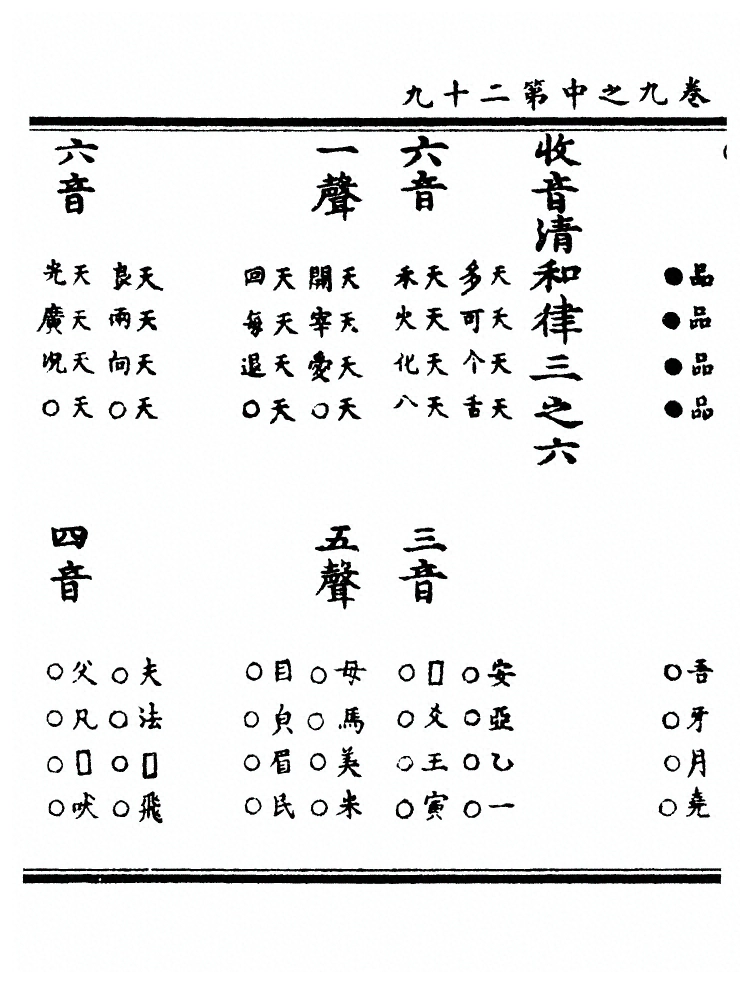 卷九之中第二十九
品品品品
●●●●
吾牙月堯
○○○○
收音清和律三之六
六音
天天天天
多可个舌
天天天天
禾火化八
三音
安亞乙一
○○○○
□爻王寅
○○○○
一聲
天天天天
開宰愛○
天天天天
回每退○
五聲
母馬美米
○○○○
目皃眉民
○○○○
六音
天天天天
良兩向○
天天天天
光廣況○
四音
夫法□飛
○○○○
父凡□吠
○○○○